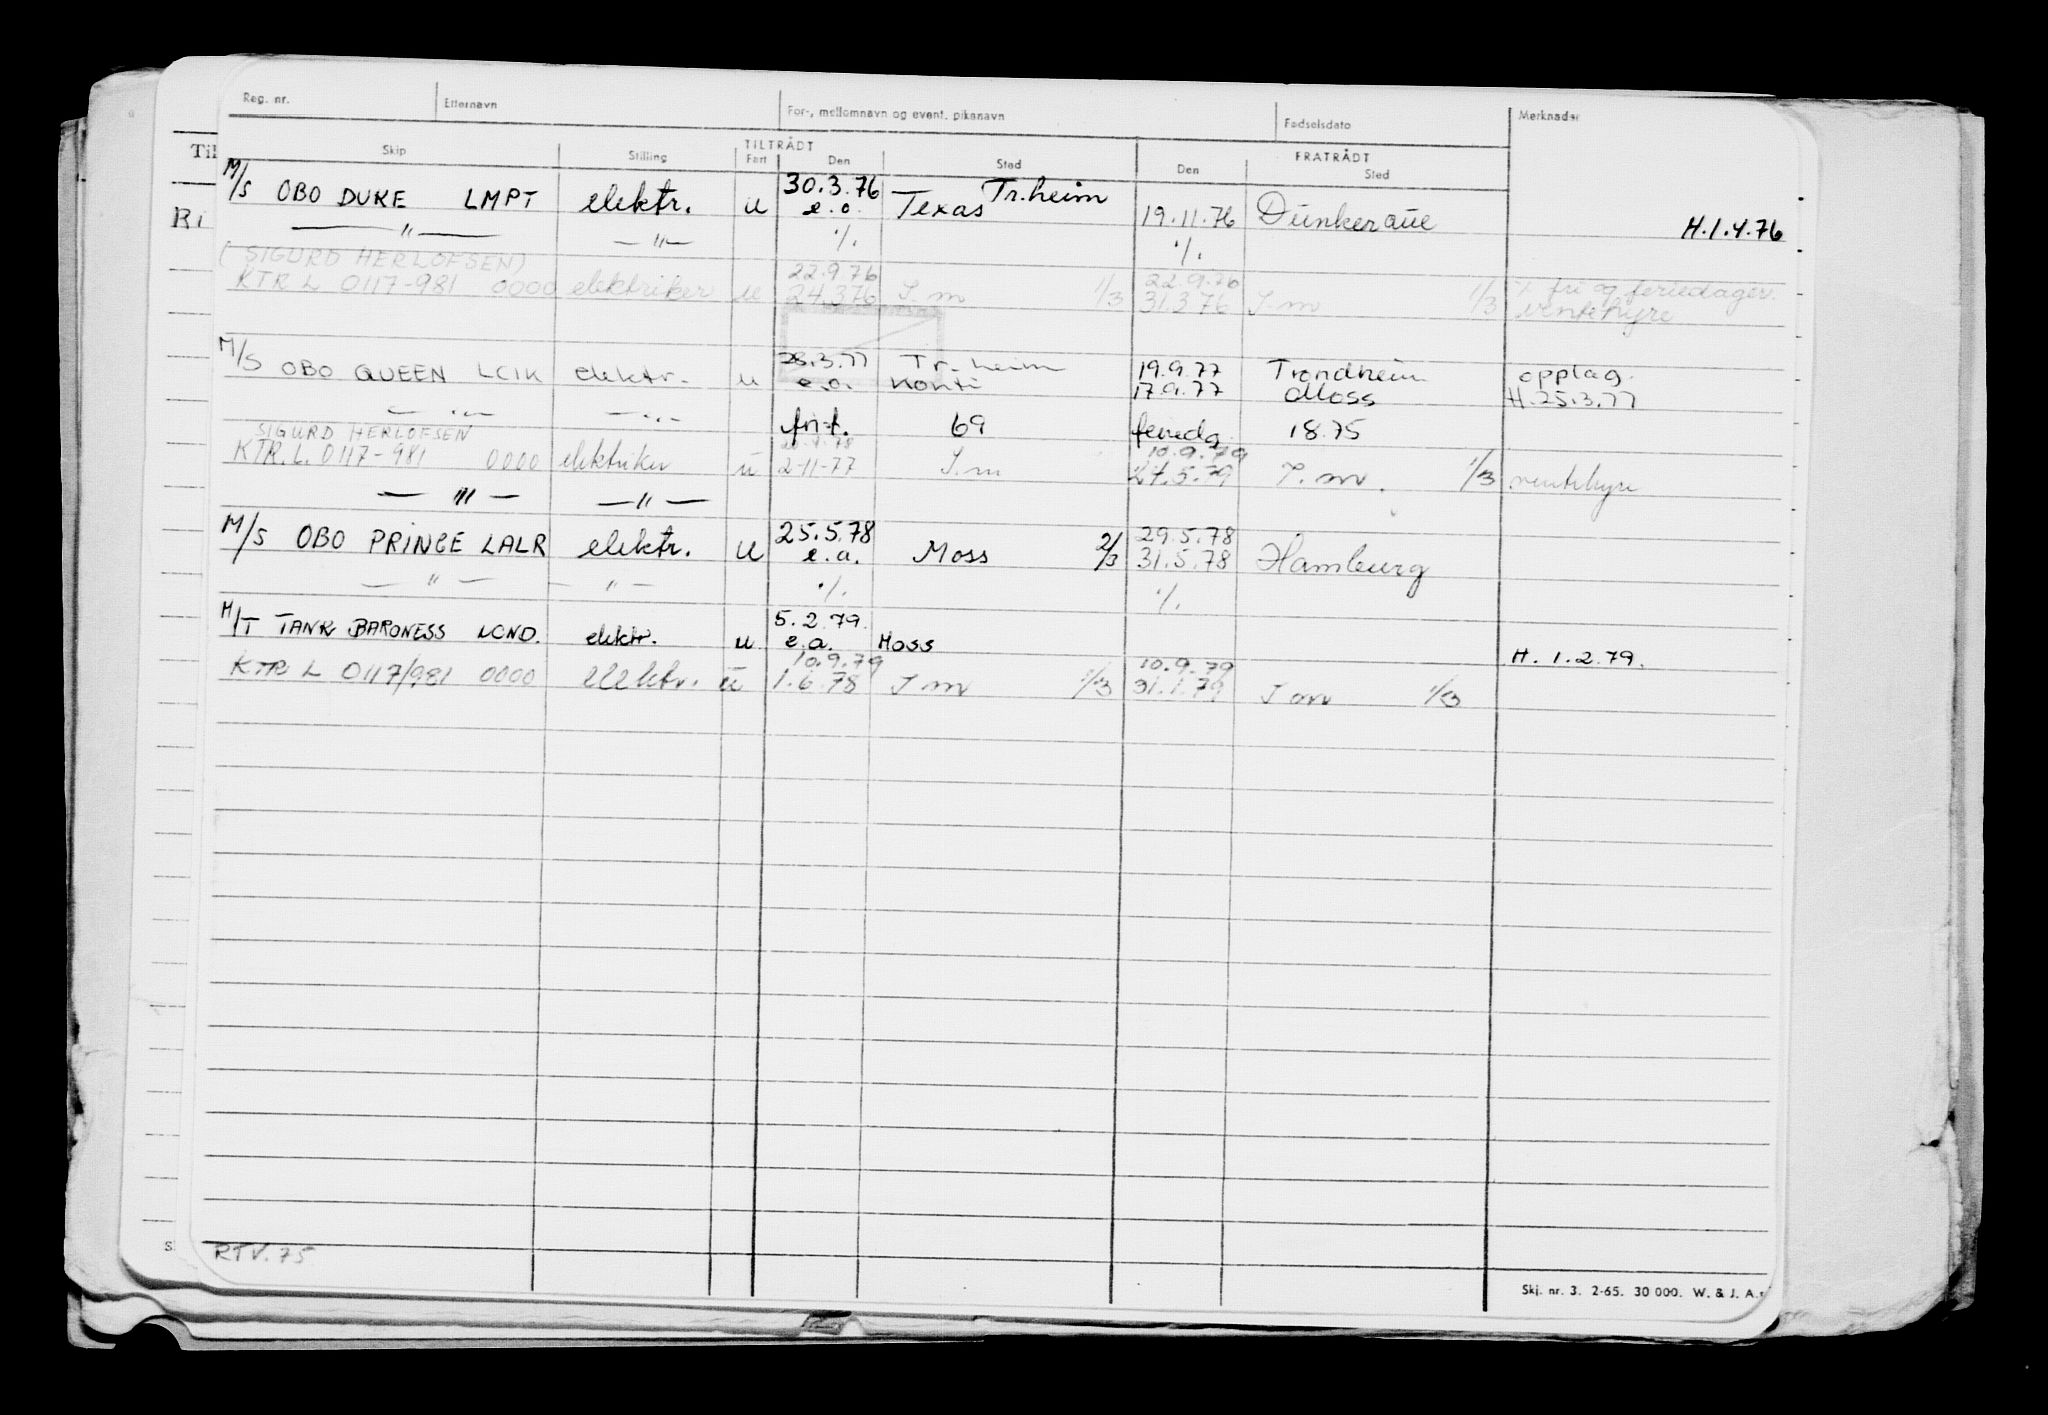 Reg. nr. Etternavn For-, mellomnavn og event. pikenavn Fødselsdato Merknader
TILTRÅDT FRATRÅDT
Skip Stilling Fart Den Sted Den Sted
Til
30.3.76 Tr.heim
M/S OBO DUKE LMPT elektr. u e.o. Texas 19.11.76 Dünkerque H.1.4.76
R
— " — — " — ·/. ·/.
(SIGURD HERLOFSEN) 22.9.76 22.9.76 fri og feriedager.
KTR L 0117-981 0000 elektriker u 24.3.76 S.m 1/3 31.3.76 S.m 1/3 ventehyre
28.3.77 Tr.heim 19.9.77 Trondheim opplag.
M/S OBO QUEEN LCIK elektr. u e.o. Konti 17.9.77 Moss H.25.3.77
— " — — " — fri.f. 69 feriedg 18.75
SIGURD HERLOFSEN 10.9.79
KTR.L. 0117-981 0000 elektriker u 2-11-77 S.m 24.5.79 S.m. 1/3 ventehyre
— " — — " —
25.5.78 29.5.78
M/S OBO PRINCE LALR elektr. u e.a. Moss 2/3 31.5.78 Hamburg
— " — — " — ·/. ·/.
5.2.79.
M/T TANK BARONESS LCND. elektr. u e.a. Moss H. 1.2.79.
10.9.79 10.9.79
KTR L 0117/981 0000 elektr. u 1.6.78 S m 1/3 31.1.79 S m 1/3
RTV. 75
Skj. nr. 3. 2-65. 30 000. W. & J. A.s